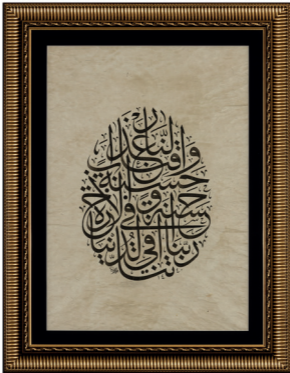 ربنا آتنا في الدنيا
حسنة وفي الآخرة
حسنة
وقنا عذاب
النار